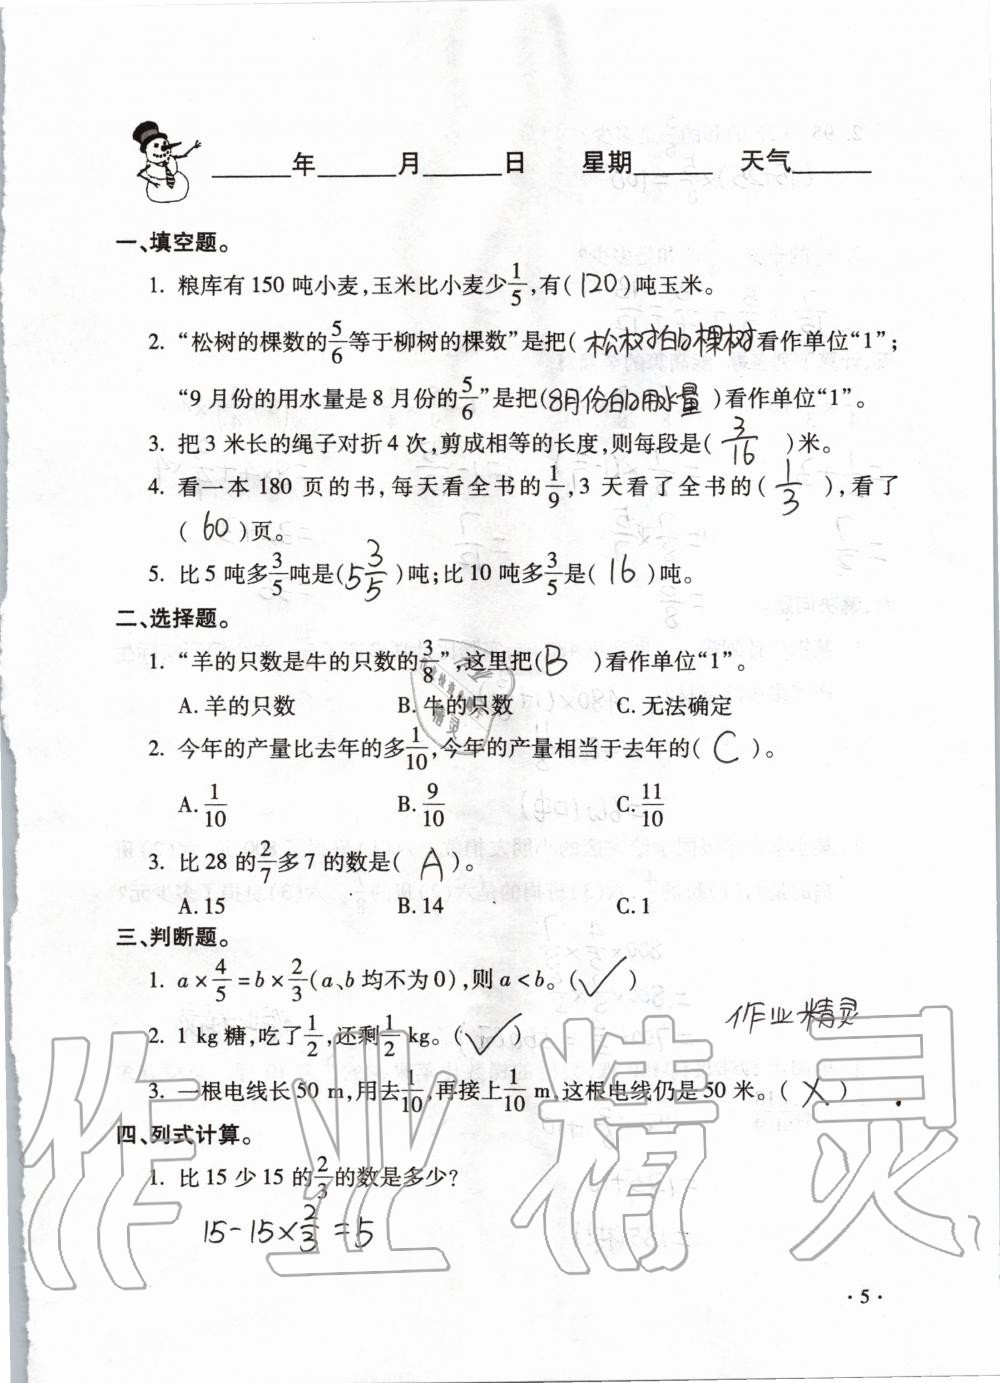 ____年____月____日 星期____ 天气____
一、填空题。
1. 粮库有150吨小麦,玉米比小麦少1/5,有(120)吨玉米。
2. “松树的棵数的5/6等于柳树的棵数”是把(松树的棵树)看作单位“1”;
“9月份的用水量是8月份的5/6”是把(8月份的用水量)看作单位“1”。
3. 把3米长的绳子对折4次,剪成相等的长度,则每段是(3/16)米。
4. 看一本180页的书,每天看全书的1/9,3天看了全书的(1/3),看了
(60)页。
5. 比5吨多3/5吨是(5 3/5)吨;比10吨多3/5是(16)吨。
二、选择题。
1. “羊的只数是牛的只数的3/8”,这里把(B)看作单位“1”。
A. 羊的只数 B. 牛的只数 C. 无法确定
2. 今年的产量比去年的多1/10,今年的产量相当于去年的(C)。
A. 1/10 B. 9/10 C. 11/10
3. 比28的2/7多7的数是(A)。
A. 15 B. 14 C. 1
三、判断题。
1. a×4/5=b×2/3(a、b均不为0),则a<b。(✓)
作业精灵
2. 1 kg糖,吃了1/2,还剩1/2 kg。(✓)
3. 一根电线长50 m,用去1/10,再接上1/10 m,这根电线仍是50米。(×)
四、列式计算。
1. 比15少15的2/3的数是多少?
15-15×2/3=5
作业精灵
·5·